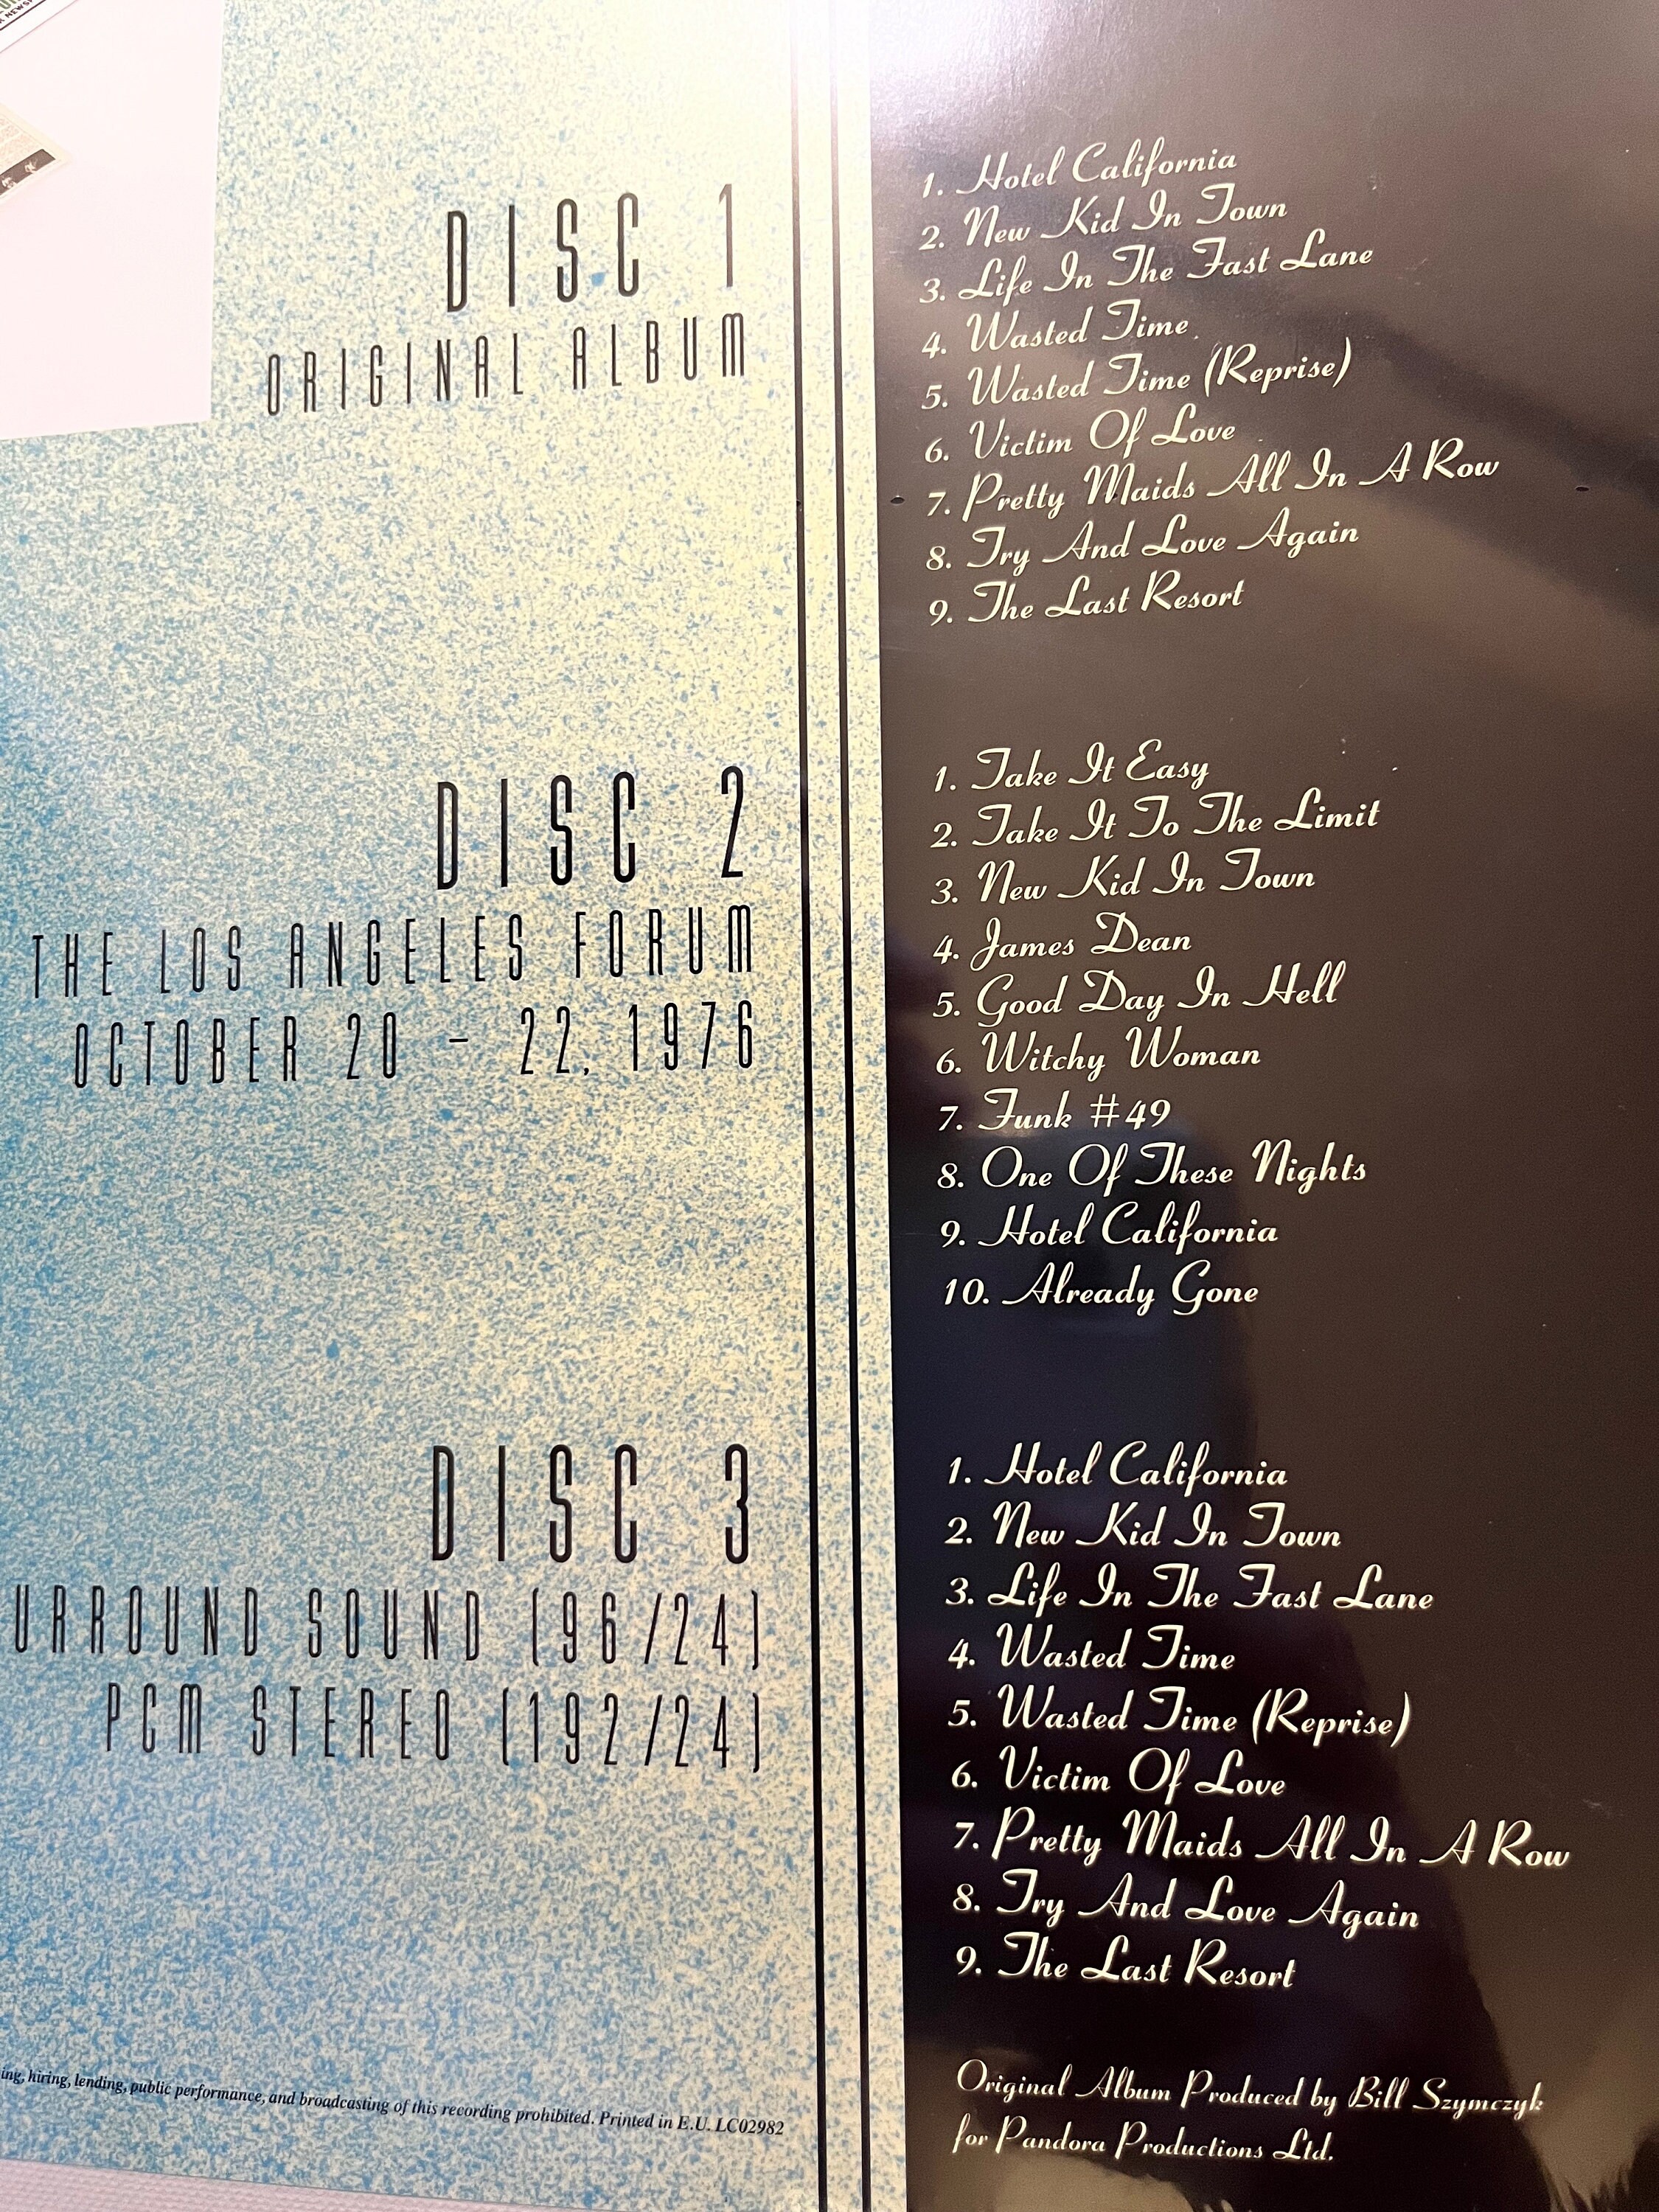 DISC 1
ORIGINAL ALBUM
1. Hotel California
2. New Kid In Town
3. Life In The Fast Lane
4. Wasted Time
5. Wasted Time (Reprise)
6. Victim Of Love
7. Pretty Maids All In A Row
8. Try And Love Again
9. The Last Resort
DISC 2
THE LOS ANGELES FORUM
OCTOBER 20 - 22, 1976
1. Take It Easy
2. Take It To The Limit
3. New Kid In Town
4. James Dean
5. Good Day In Hell
6. Witchy Woman
7. Funk #49
8. One Of These Nights
9. Hotel California
10. Already Gone
DISC 3
URROUND SOUND (96/24)
PCM STEREO (192/24)
1. Hotel California
2. New Kid In Town
3. Life In The Fast Lane
4. Wasted Time
5. Wasted Time (Reprise)
6. Victim Of Love
7. Pretty Maids All In A Row
8. Try And Love Again
9. The Last Resort
ing, hiring, lending, public performance, and broadcasting of this recording prohibited. Printed in E.U. LC02982
Original Album Produced by Bill Szymczyk
for Pandora Productions Ltd.